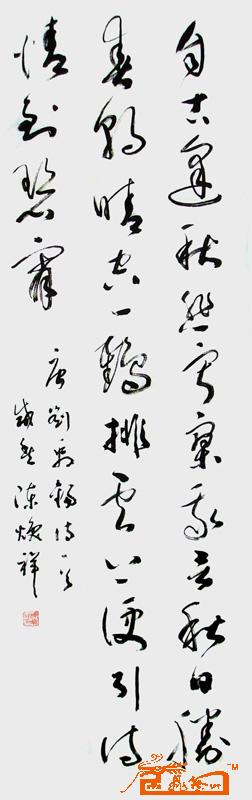 自古逢秋悲寂寥我言秋日胜
春朝晴空一鹤排云上便引诗
情到碧霄
唐刘禹锡诗一首
陈焕祥
TM